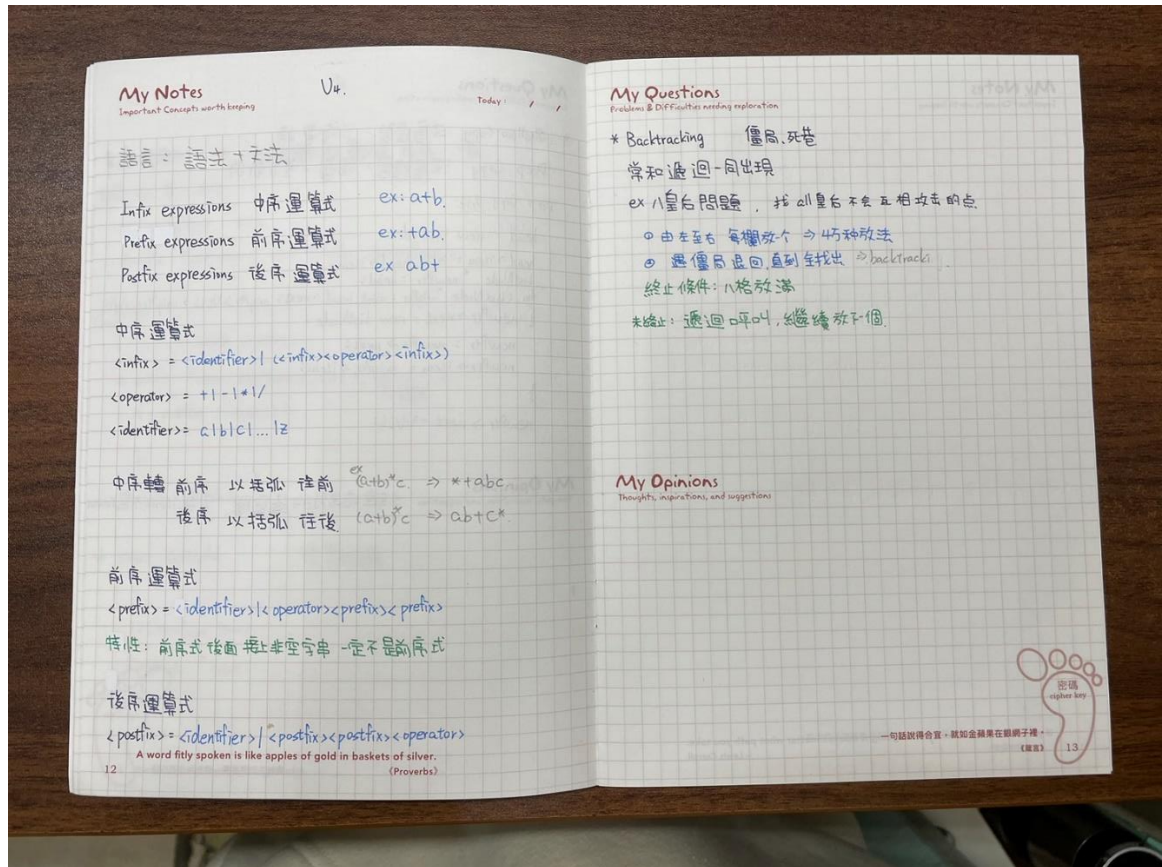 My Notes
U4.
Important Concepts worth keeping
Today : / /
語言：語法+文法
Infix expressions 中序運算式 ex: a+b.
Prefix expressions 前序運算式 ex: +ab.
Postfix expressions 後序運算式 ex ab+
中序運算式
<infix> = <identifier>| (<infix><operator><infix>)
<operator> = +|-|*|/
<identifier>= a|b|c|...|z
中序轉 前序 以括弧往前 ex (a+b)*c. ⇒ *+abc
後序 以括弧往後 (a+b)*c ⇒ ab+c*.
前序運算式
<prefix> = <identifier>|<operator><prefix><prefix>
特性：前序式後面接上非空字串 一定不是前序式
後序運算式
<postfix> = <identifier>|<postfix><postfix><operator>
A word fitly spoken is like apples of gold in baskets of silver.
《Proverbs》
12
My Questions
Problems & Difficulties needing exploration
* Backtracking 僵局、死巷
常和遞迴一同出現
ex 八皇后問題，找all皇后不会互相攻击的点.
① 由左至右 每欄放一个 ⇒ 4万种放法
② 遇僵局退回,直到全找出 ⇒backtracki
終止條件：八格放滿
未終止：遞迴呼叫,繼續放下個.
My Opinions
Thoughts, inspirations, and suggestions
密碼
cipher key
一句話說得合宜，就如金蘋果在銀網子裡。
《箴言》
13